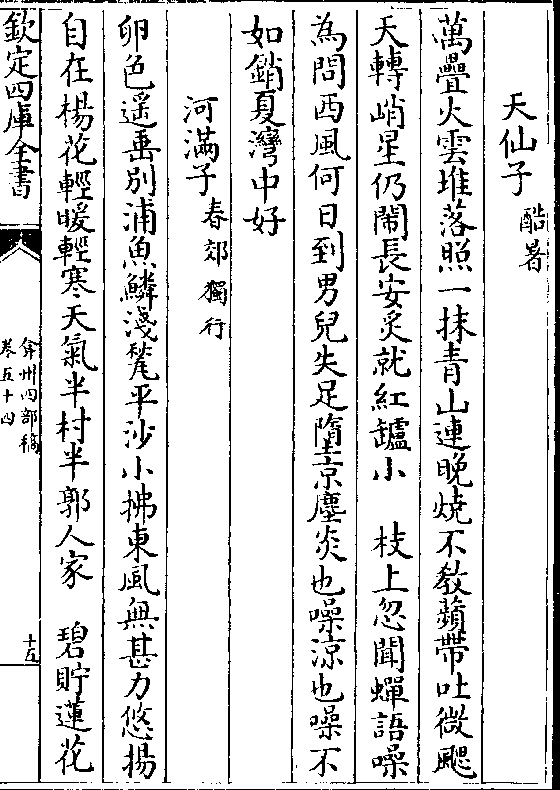 天仙子酷暑
萬疊火雲堆落照一抹青山連晚燒不教蘋帶吐微颸
天轉峭星仍鬧長安炙就紅鑪小　枝上忽聞蟬語噪
為問西風何日到男兒失足隋京塵炎也噪涼也噪不
如銷夏灣中好
河滿子春郊獨行
卵色遥垂別浦魚鱗淺蹙平沙小拂東風無甚力悠揚
自在楊花輕暖輕寒天氣半村半郭人家　碧貯蓮花
欽定四庫全書
弇州四部稿
卷五十四
十五